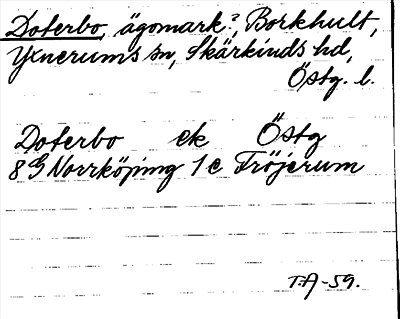 Doterbo, ägomark?, Borkhult,
Yxnerums sn, Skärkinds hd,
Östg. l.
Doterbo ek Östg
8G Norrköping 1c Fröjerum
T.A-59.